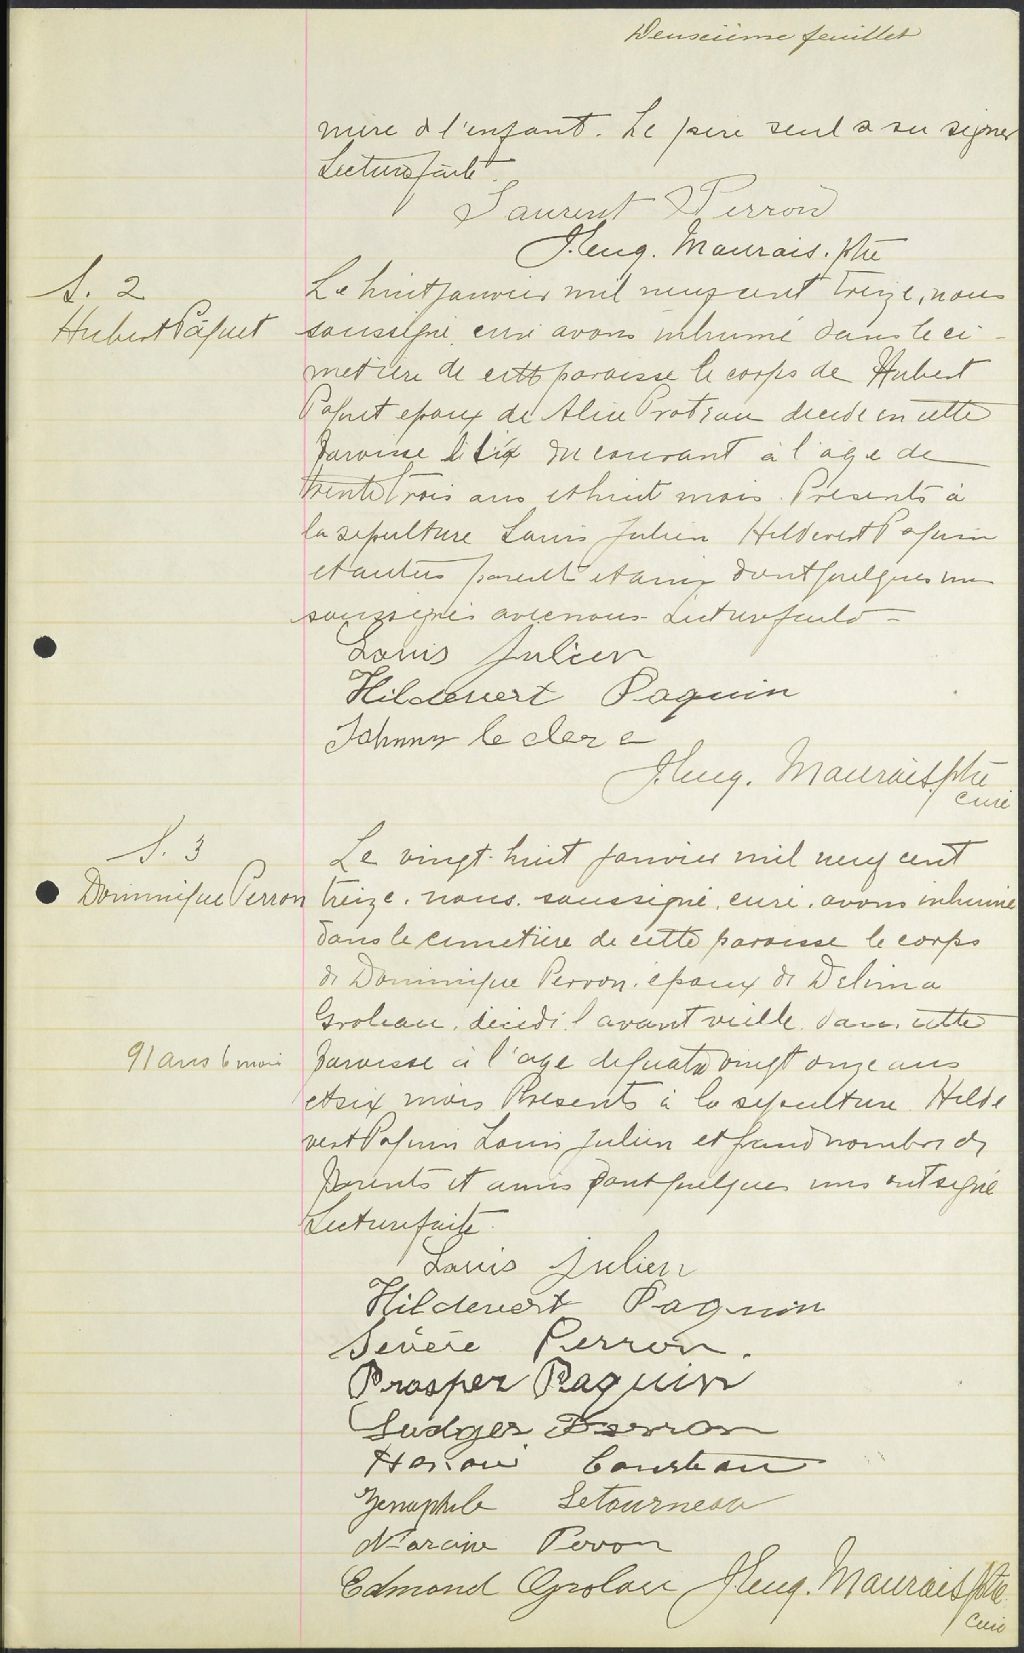 Deuxiième feuillet
mère de l'enfant. Le père seul a su signer
Lecture faite.
Laurent Perron
J. Eug. Maurais. ptre
S. 2
Hubert Paquet
Le huit janvier mil neuf cent treize, nous
soussigné, curé avons inhumé dans le ci-
metière de cette paroisse le corps de Hubert
Paquet epoux de Alice Proteau decédé en cette
paroisse le six du courant à l'age de
trente trois ans et huit mois. Présents à
la sepulture Louis Julien Hildevert Paquin
et autres parents et amis dont quelques uns
soussignés avec nous. Lecture faite -
Louis Julien
Hildevert Paquin
Johnny leclerc
J. Eug. Maurais. ptre
curé
S. 3
Dominique Perron
Le vingt-huit janvier mil neuf cent
treize, nous, soussigné, curé, avons inhumé
dans le cimetière de cette paroisse le corps
de Dominique Perron, époux de Delima
Groleau, décédé l'avant veille, dans cette
91 ans 6 mois
paroisse à l'age de quatre vingt onze ans
et six mois Présents à la sepulture Hilde
vert Paquin Louis Julien et grand nombre de
parents et amis dont quelques uns ont signé
Lecture faite.
Louis Julien
Hildevert Paquin
Sévère Perron.
Prosper Paquin
Ludger Perron
Letourneau
Perron
Edmond Groleau J Eug. Maurais ptre
curé